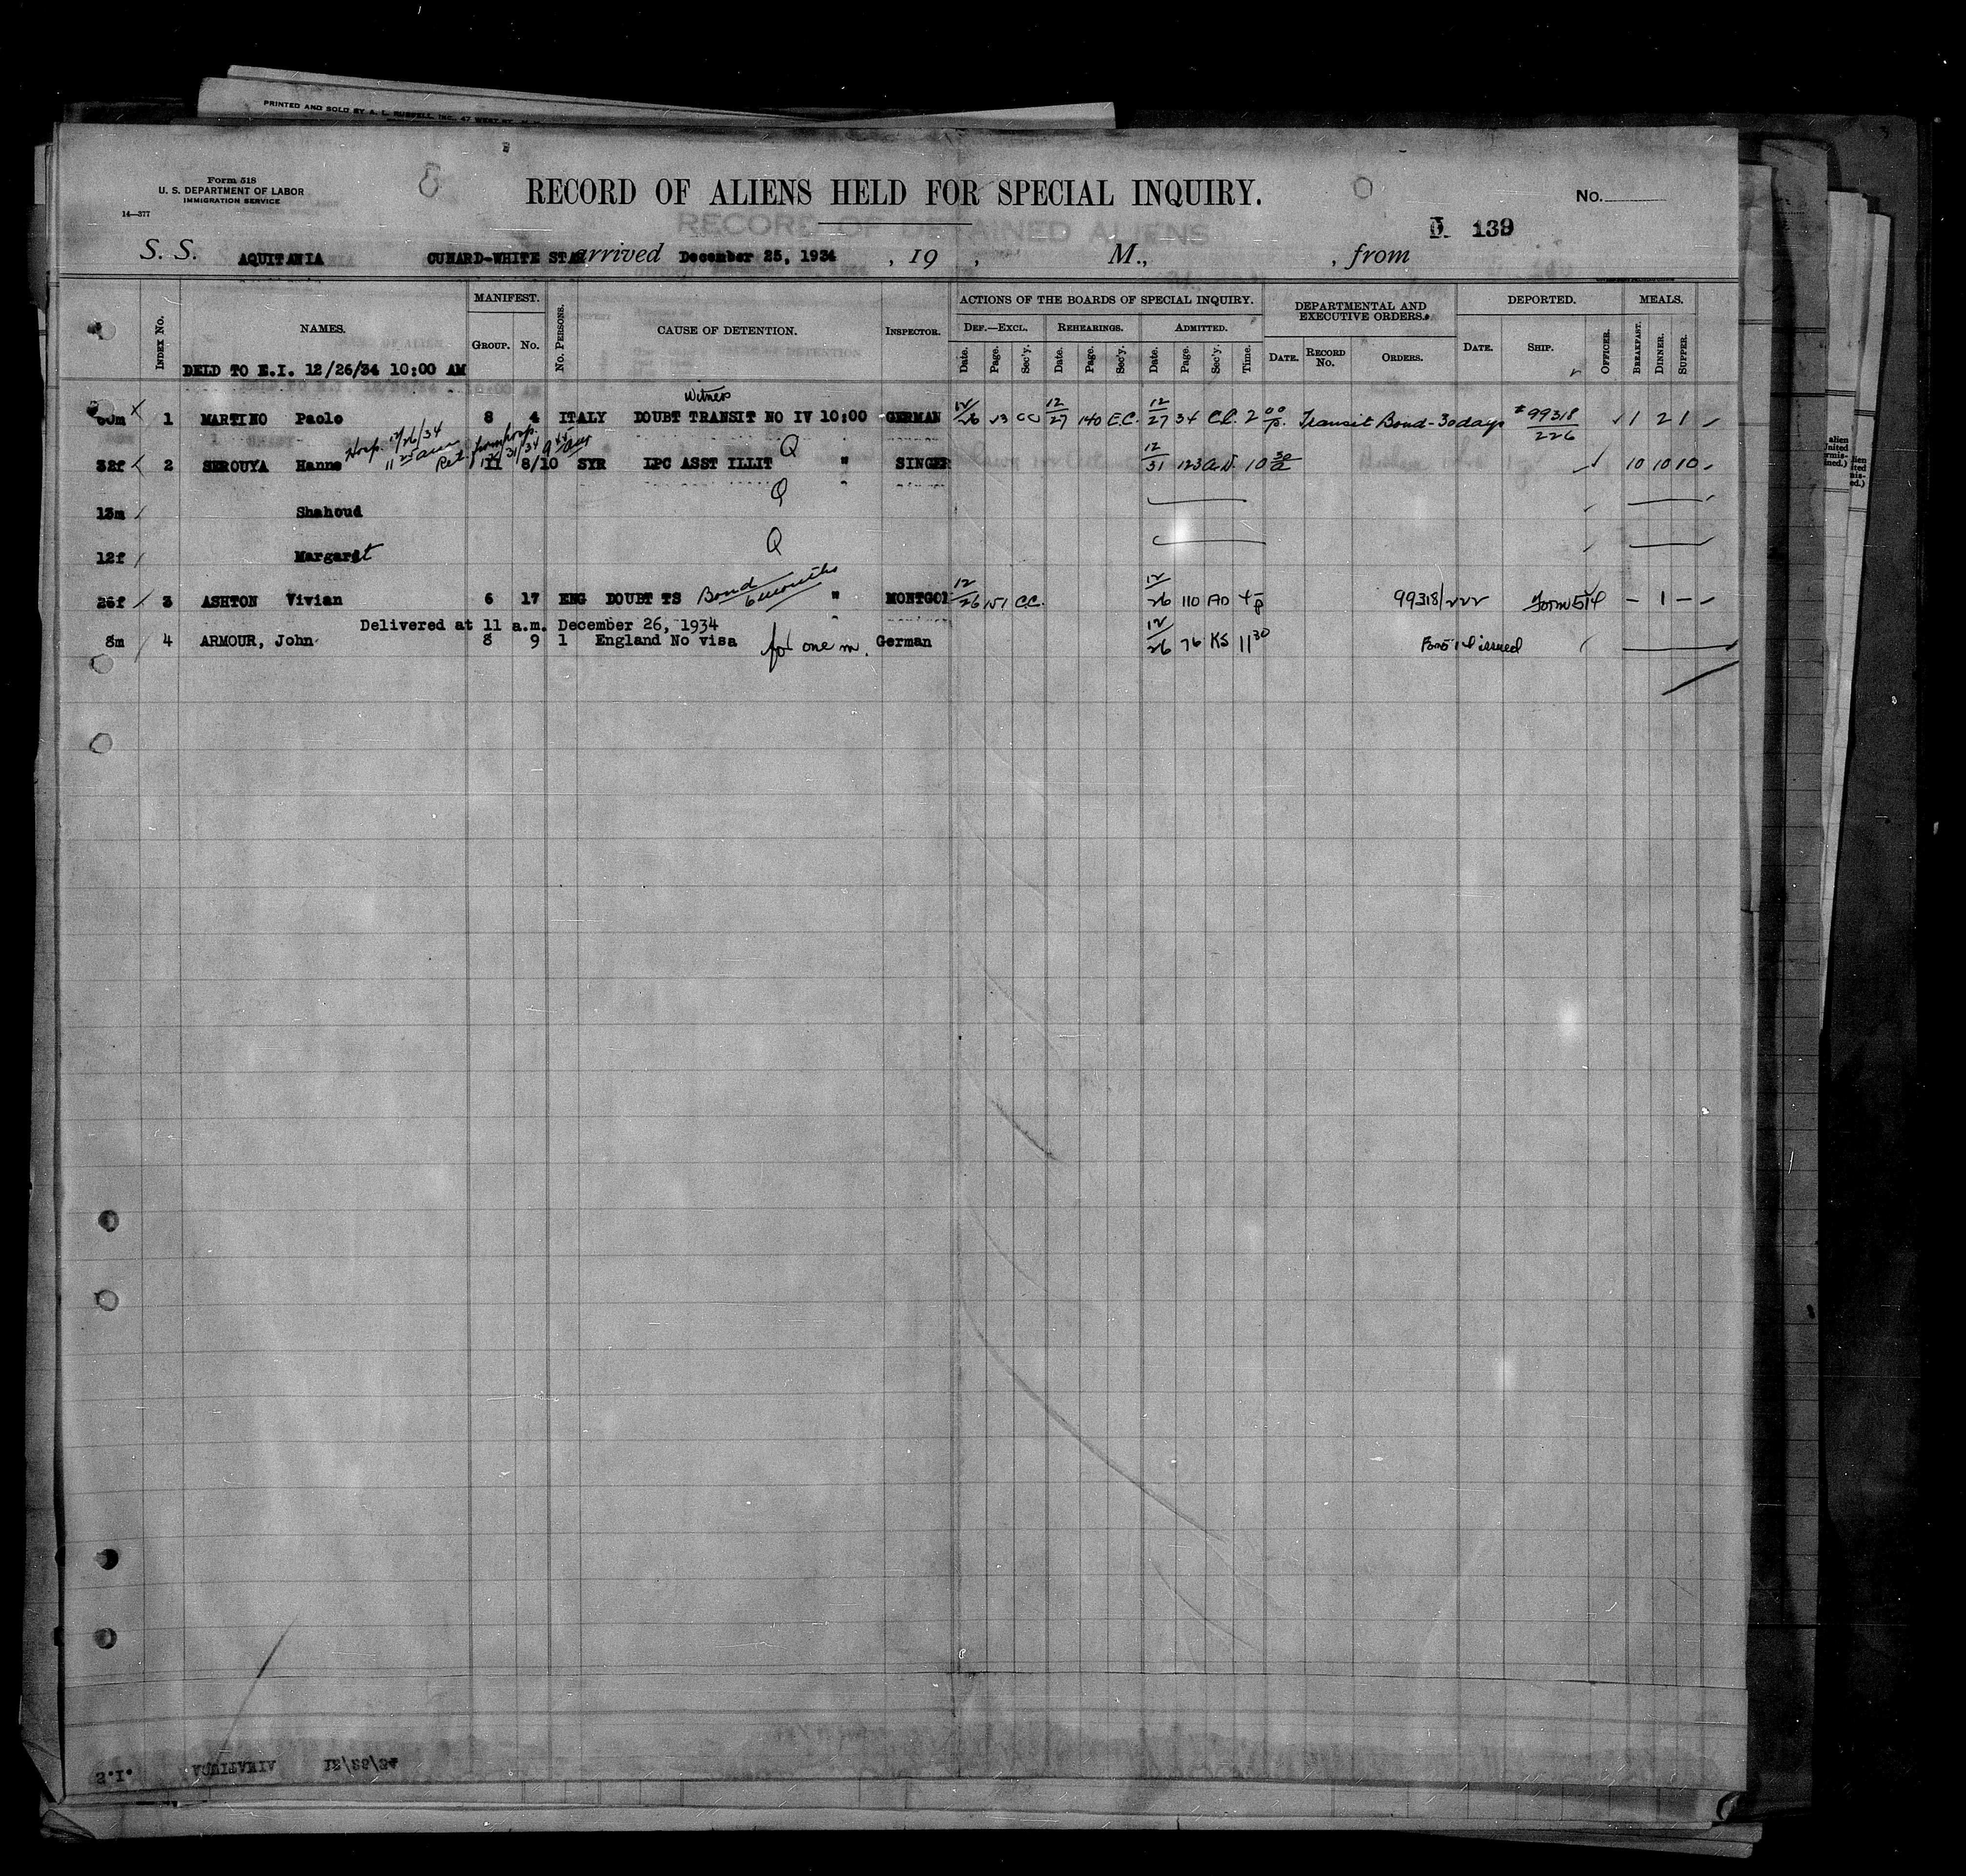 PRINTED AND SOLD BY A. L. RUSSELL, INC., 47 WEST ST.
Form 518
U. S. DEPARTMENT OF LABOR
IMMIGRATION SERVICE
14—377
RECORD OF ALIENS HELD FOR SPECIAL INQUIRY.
No.
139
RECORD OF DETAINED ALIENS
S. S. AQUITANIA CUNARD-WHITE STAR arrived December 25, 1934, 19 , M., , from
Index No. NAMES. MANIFEST. Group. No. No. Persons. CAUSE OF DETENTION. Inspector. ACTIONS OF THE BOARDS OF SPECIAL INQUIRY. DEPARTMENTAL AND EXECUTIVE ORDERS. DEPORTED. MEALS.
Def.—Excl. Rehearings. Admitted.
Date. Page. Sec'y. Date. Page. Sec'y. Date. Page. Sec'y. Time. Date. Record No. Orders. Date. Ship. Officer. Breakfast. Dinner. Supper.
DELD TO E.I. 12/26/34 10:00 AM
Witness
60m X 1 MARTINO Paolo 8 4 ITALY DOUBT TRANSIT NO IV 10:00 GERMAN 12/26 13 CC 12/27 140 E.C. 12/27 34 2 00 p. Transit Bond - 30 days #99318/226 1 2 1
Hosp. 12/26/34 11 25 am Ret. from hosp. 12/31/34
32f 2 SEROUYA Hanne 11 8/10 SYR LPC ASST ILLIT Q " SINGER 12/31 123 10 30 a 10 10 10
13m Shahoud Q
12f Margaret Q
26f 3 ASHTON Vivian 6 17 ENG DOUBT TS Bond 6 months " MONTGOM 12/26 151 C.C. 12/26 110 AD 4 p 99318/222 Form 514 - 1 -
Delivered at 11 a.m. December 26, 1934
8m 4 ARMOUR, John 8 9 1 England No visa for one m. German 12/26 76 KS 11 30 issued
E.I. AQUITANIA 12/25/34